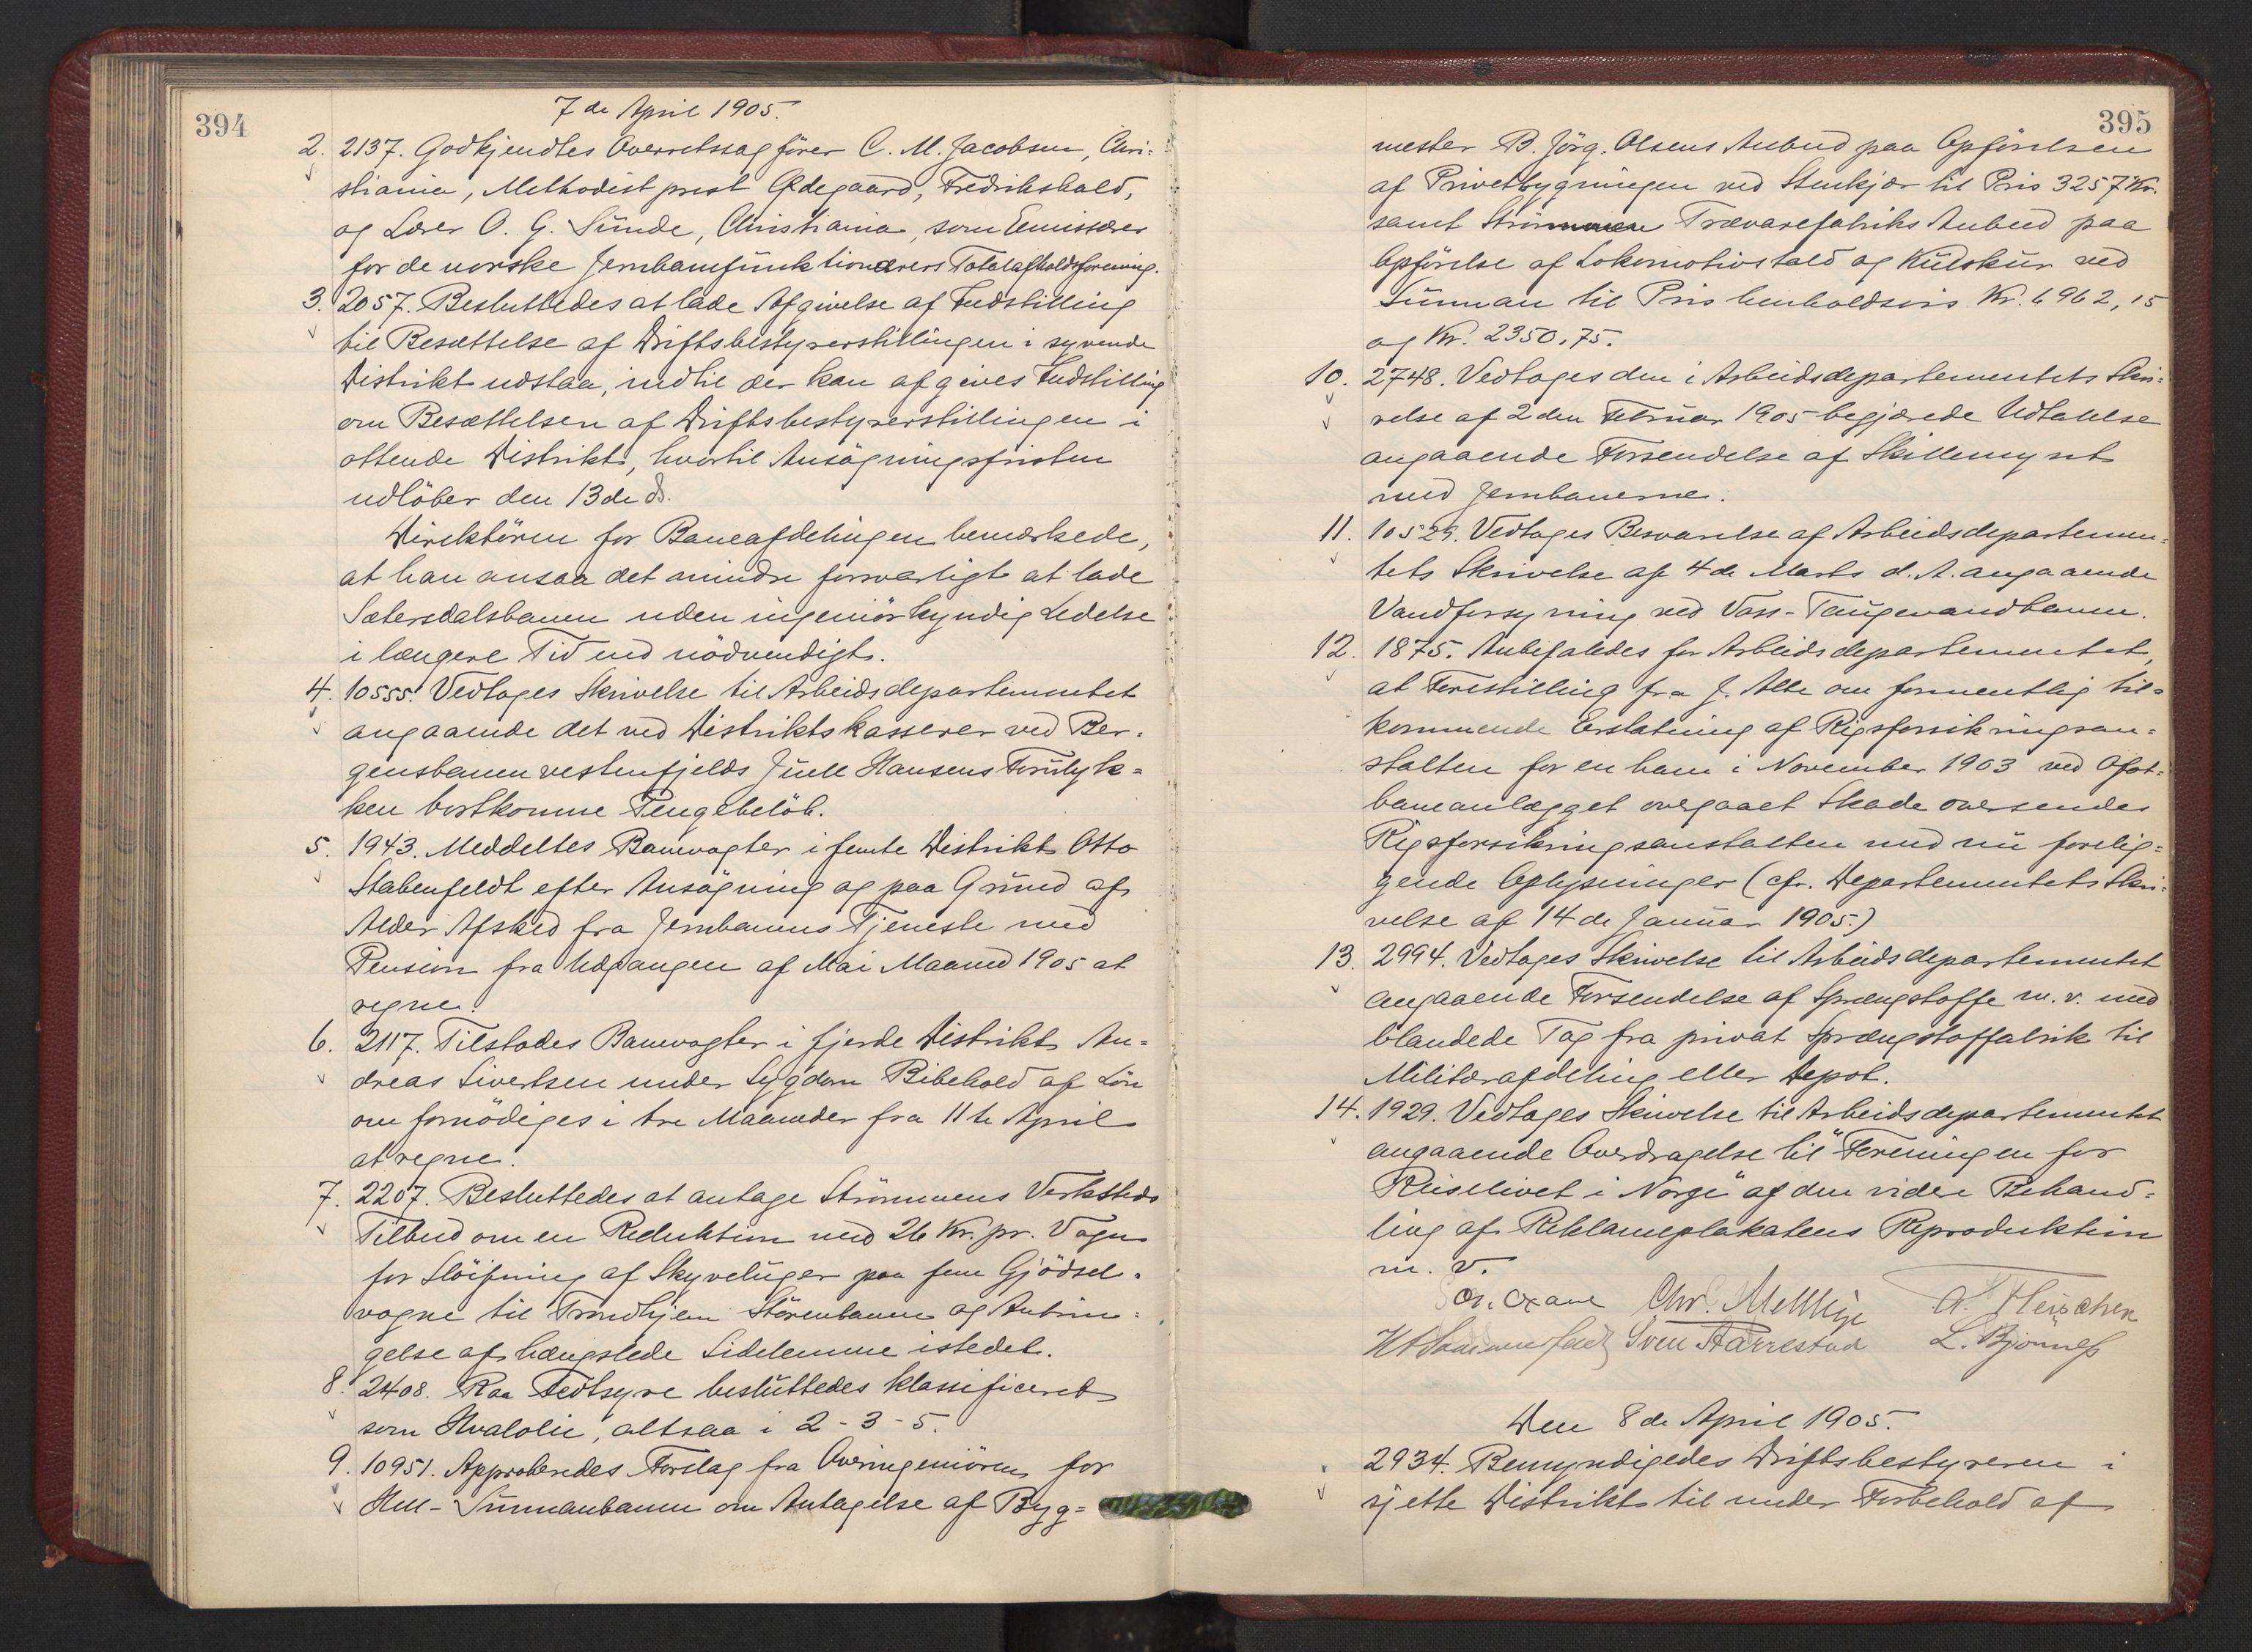 394
7de April 1905.
2. 2137. Godkjendtes Overretssagfører C. M. Jacobsen, Chri=
stiania, Methodistprest Ødegaard, Fredrikshald,
og Lærer O. G. Sunde, Christiania, som Emissærer
for de norske Jernbanefunktionærers Totalafholdsforening.
3. 2057. Besluttedes at lade Afgivelse af Indstilling
til Besættelse af Driftsbestyrerstillingen i syvende
Distrikt udstaa, indtil der kan afgives Indstilling
om Besættelsen af Driftsbestyrerstillingen i
ottende Distrikt, hvortil Ansøgningsfristen
udløber den 13de ds.
Direktøren for Baneafdelingen bemærkede,
at han ansaa det mindre forsvarligt at lade
Sætersdalsbanen uden ingeniørkyndig Ledelse
i længere Tid end nødvendigt.
4. 10555. Vedtoges Skrivelse til Arbeidsdepartementet
angaaende det ved Distriktskasserer ved Ber=
gensbanen vestenfjelds Juell Hansens Forulyk=
ken bortkomne Pengebeløb.
5. 1943. Meddeltes Banevogter i femte Distrikt Otto
Stabenfeldt efter Ansøgning og paa Grund af
Alder Afsked fra Jernbanens Tjeneste med
Pension fra Udgangen af Mai Maaned 1905 at
regne.
6. 2117. Tilstodes Banevogter i fjerde Distrikt An=
dreas Sivertsen under Sygdom Bibehold af Løn
om fornødiges i tre Maaneder fra 11te April
at regne.
7. 2207. Besluttedes at antage Strømmens Verksteds
Tilbud om en Reduktion med 26 Kr. pr. Vogn
for Sløifning af Skyveluger paa fem Gjødsel=
vogne til Trondhjem Størenbanen og Anbrin=
gelse af hængslede Sidelemme istedet.
8. 2408. Raa Fedtsyre besluttedes klassificeret
som Hvalolie, altsaa i 2-3-5.
9. 10951. Approberedes Forslag fra Overingeniøren for
Hell-Sunnanbanen om Antagelse af Byg=
395
mester B. Jørg. Olsens Anbud paa Opførelsen
af Privetbygningen ved Stenkjær til Pris 3257 Kr.
samt Strømmen Trævarefabriks Anbud paa
Opførelse af Lokomotivstald og Kulskur ved
Sunnan til Pris henholdsvis Kr. 6962,15
og Kr. 2350,75.
10. 2748. Vedtoges den i Arbeidsdepartementets Skri=
velse af 2den Februar 1905 begjærede Udtalelse
angaaende Forsendelse af Skillemynt
med Jernbanerne.
11. 10529. Vedtoges Besvarelse af Arbeidsdepartemen=
tets Skrivelse af 4de Marts d. A. angaaende
Vandforsyning ved Voss-Taugevandbanen.
12. 1875. Anbefaledes for Arbeidsdepartementet,
at Forestilling fra J. Alte om formentlig til=
kommende Erstatning af Rigsforsikringsan=
stalten for en ham i November 1903 ved Ofot=
baneanlægget overgaaet Skade oversendes
Rigsforsikringsanstalten med nu forelig=
gende Oplysninger (cfr. Departementets Skri=
velse af 14de Januar 1905.)
13. 2994. Vedtoges Skrivelse til Arbeidsdepartementet
angaaende Forsendelse af Sprængstoffe m. v. med
blandede Tog fra privat Sprængstoffabrik til
Militærafdeling eller Depot.
14. 1929. Vedtoges Skrivelse til Arbeidsdepartementet
angaaende Overdragelse til "Foreningen for
Reiselivet i Norge" af den videre Behand=
ling af Reklameplakatens Reproduktion
m. v.
Chr. A. Fleischer
Sven Aarrestad L. Bjønnes
Den 8de April 1905.
2934. Bemyndigedes Driftsbestyreren i
sjette Distrikt til under Forbehold af